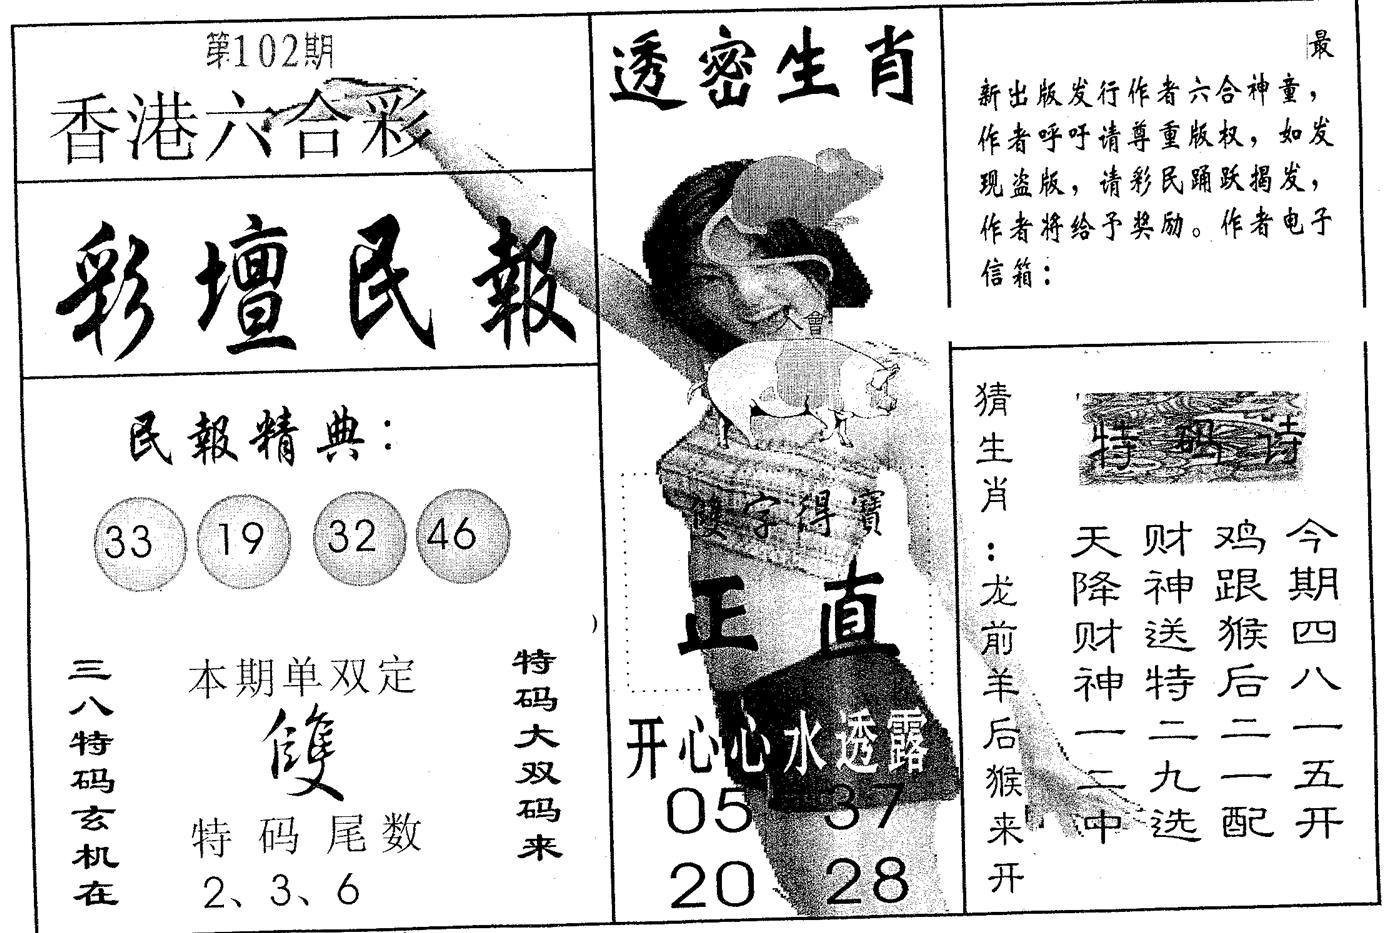 第102期
香港六合彩
彩壇民報
民報精典：
33 19 32 46
三八特码玄机在
本期单双定
雙
特码尾数
2、3、6
特码大双码来
透密生肖
會
雙字得寶
正直
开心心水透露
05 37
20 28
最
新出版发行作者六合神童，
作者呼吁请尊重版权，如发
现盗版，请彩民踊跃揭发，
作者将给予奖励。作者电子
信箱：
猜生肖：龙前羊后猴来开
特码诗
今期四八一五开
鸡跟猴后二一配
财神送特二九选
天降财神一二中